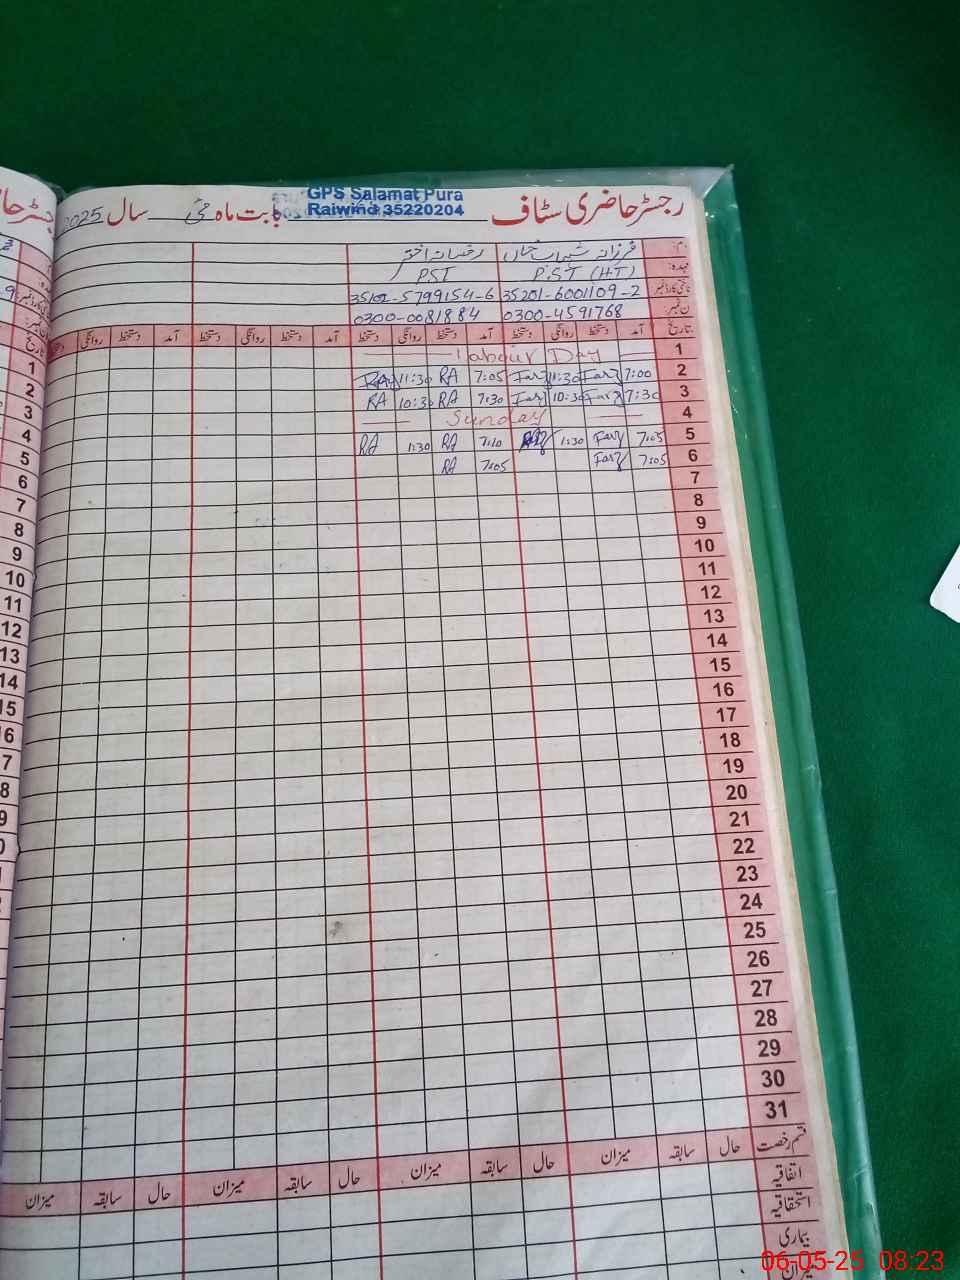 رجسٹر حاضری سٹاف بابت ماہ مئی سال 2025
GPS Salamat Pura
Raiwind 35220204
فرزانہ شہاب خان رخسانہ اختر
عہدہ: P.S.T (H.T) PST
35201-6001109-2 35102-5799154-6
0300-4591768 0300-0081884
تاریخ آمد دستخط روانگی دستخط آمد دستخط روانگی دستخط آمد دستخط روانگی دستخط آمد دستخط روانگی
1 Labour Day
2 7:00 Farz 11:30 Farz 7:05 RA 11:30 RA
3 7:30 Farz 10:30 Farz 7:30 RA 10:30 RA
4 Sunday
5 7:05 Farz 1:30 7:10 RA 1:30 RA
6 7:05 Farz 7:05 RA
7
8
9
10
11
12
13
14
15
16
17
18
19
20
21
22
23
24
25
26
27
28
29
30
31
قسم رخصت حال سابقہ میزان حال سابقہ میزان حال سابقہ میزان حال سابقہ میزان
اتفاقیہ
استحقاقیہ
بیماری
میزان
1
2
3
4
5
6
7
8
9
10
11
12
13
14
15
06-05-25 08:23